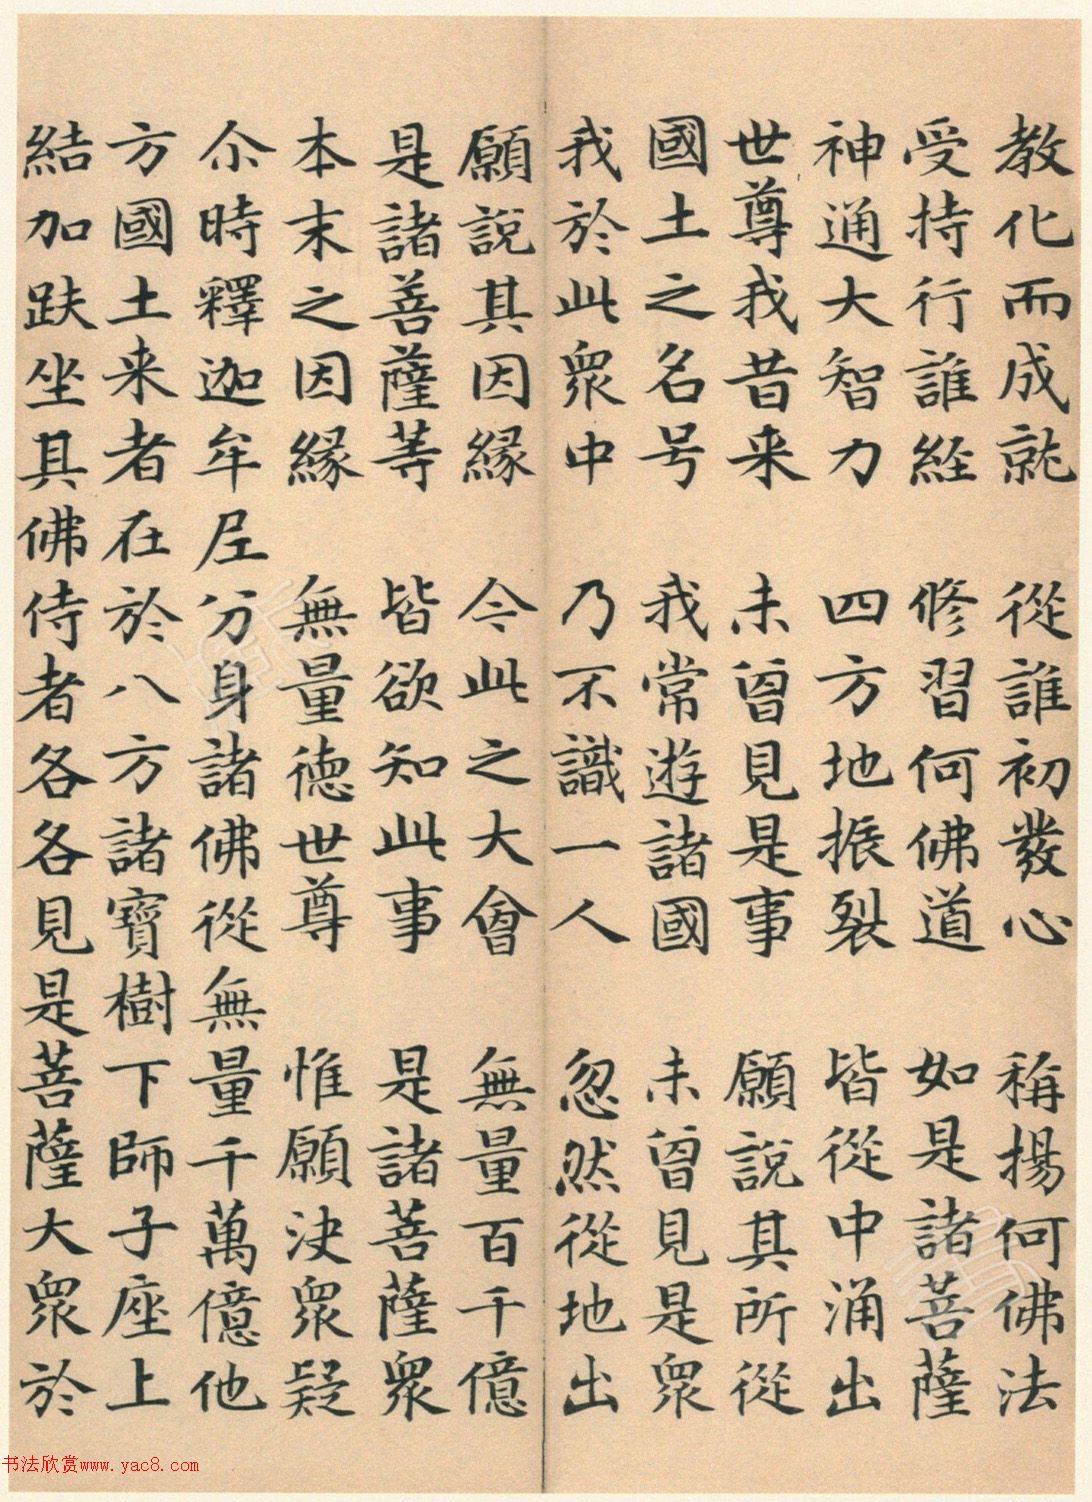 教化而成就 從誰初發心 稱揚何佛法
受持行誰經 修習何佛道 如是諸菩薩
神通大智力 四方地振裂 皆從中涌出
世尊我昔来 未曾見是事 願說其所從
國土之名号 我常遊諸國 未曾見是眾
我於此眾中 乃不識一人 忽然從地出
願說其因緣 今此之大會 無量百千億
是諸菩薩等 皆欲知此事 是諸菩薩眾
本末之因緣 無量德世尊 惟願決眾疑
尒時釋迦牟尼分身諸佛從無量千萬億他
方國土来者在於八方諸寶樹下師子座上
結加趺坐其佛侍者各各見是菩薩大眾於
书法欣赏www.yac8.com